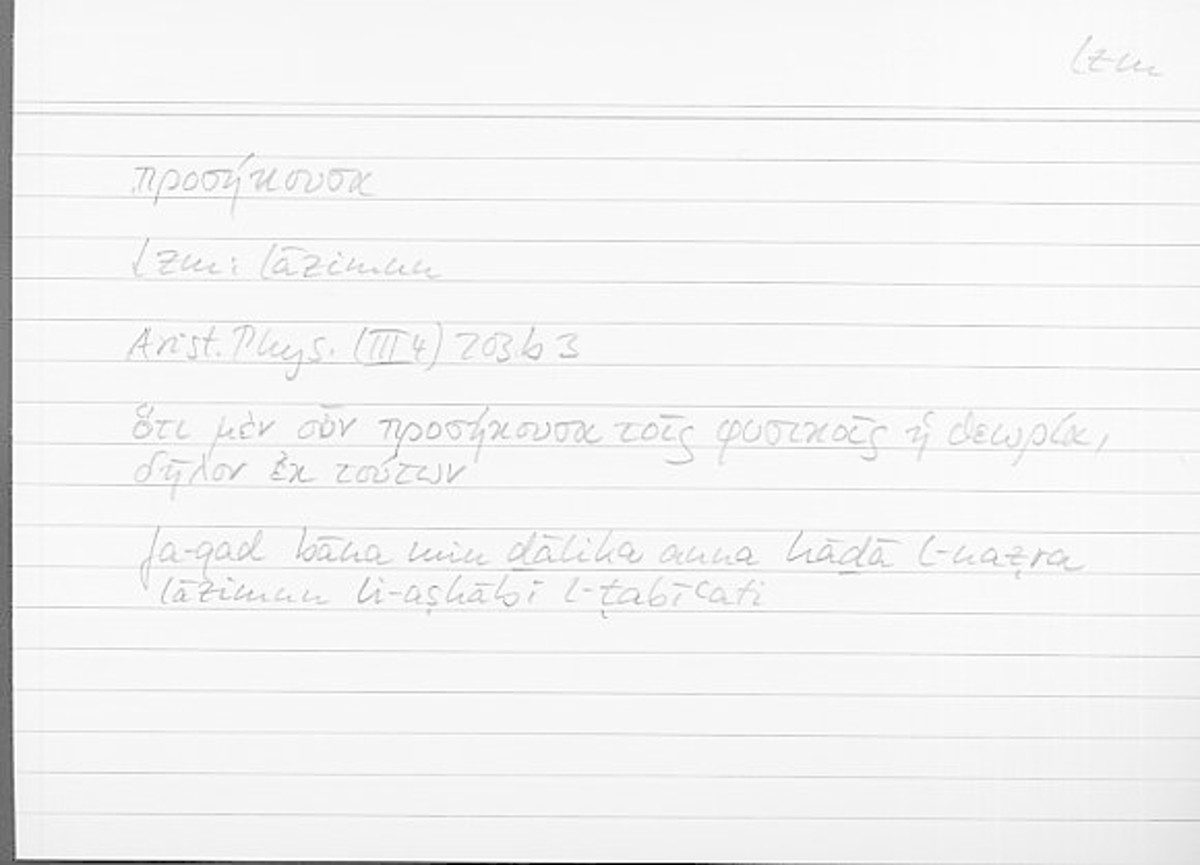 lzm
προσήκουσα
lzm: lāzimun
Arist. Phys. (III 4) 203 b 3
ὅτι μὲν οὖν προσήκουσα τοῖς φυσικοῖς ἡ θεωρία,
δῆλον ἐκ τούτων
fa-qad bāna min ḏālika anna hāḏā l-naẓra
lāzimun li-aṣḥābi l-ṭabīʿati